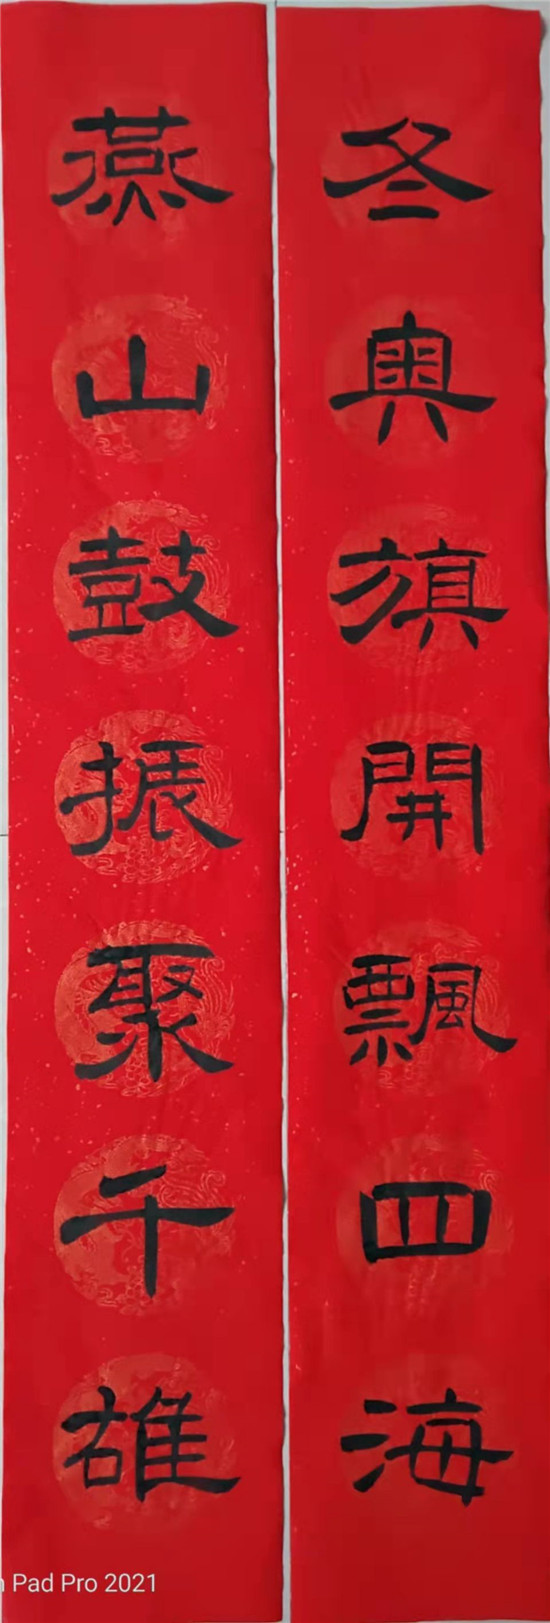 冬奥旗開飄四海
燕山鼓振聚千雄
n Pad Pro 2021